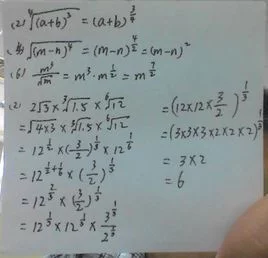 (2) ∜(a+b)³ = (a+b)^(3/4)
√(m-n)⁴ = (m-n)^(4/2) = (m-n)²
(6) m³/√m = m³·m^(1/2) = m^(7/2)
(2) 2√3 × ∛1.5 × ⁶√12
= √(4×3) × ∛1.5 × ⁶√12
= 12^(1/2) × (3/2)^(1/3) × 12^(1/6)
= 12^(1/2+1/6) × (3/2)^(1/3)
= 12^(2/3) × (3/2)^(1/3)
= 12^(1/3) × 12^(1/3) × 3^(1/3)/2^(1/3)
= (12×12×3/2)^(1/3)
= (3×3×3×2×2×2)^(1/3)
= 3×2
= 6